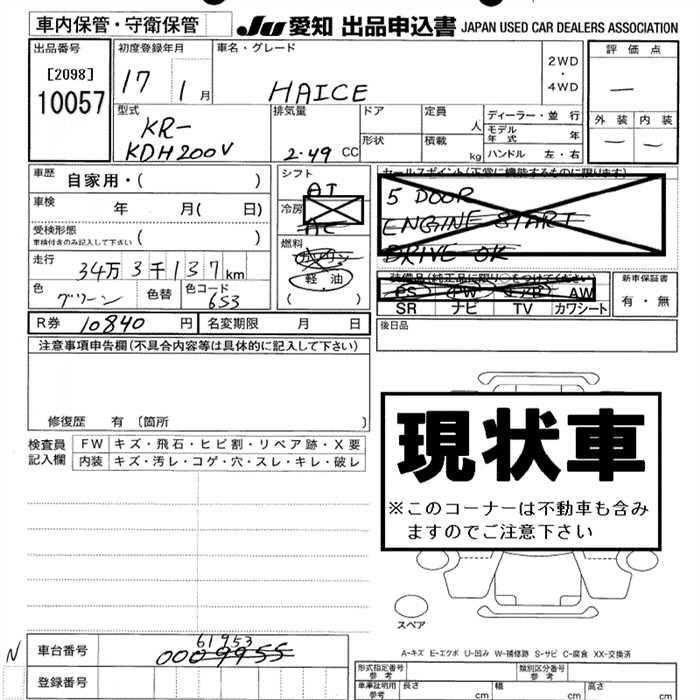 車内保管・守衛保管
JU 愛知 出品申込書 JAPAN USED CAR DEALERS ASSOCIATION
出品番号
[2098]
10057
初度登録年月
17 1月
車名・グレード
HAICE
2WD
・
4WD
評価点
―
外装 内装
― ―
型式
KR-
KDH200V
排気量
2.49 CC
ドア
形状
定員
人
積載
kg
ディーラー・並行
モデル年式 年
ハンドル 左・右
車歴
自家用・( )
車検
年 月( 日)
受検形態
車検付きのみ記入して下さい ( )
走行
34万3千137km
色
グリーン
色替
色コード
6S3
シフト
AT
冷房
AC
燃料
ガソリン
軽油
( )
セールスポイント(正常に機能するものに限ります)
5 DOOR
ENGINE START
DRIVE OK
装備品(純正品に限り○をつけてください)
PS PW エアB AW
SR ナビ TV カワシート
新車保証書
有・無
R券 10840 円
名変期限 月 日
後日品
注意事項申告欄(不具合内容等は具体的に記入して下さい)
修復歴 有 〔箇所 〕
検査員
記入欄
FW キズ・飛石・ヒビ割・リペア跡・X要
内装 キズ・汚レ・コゲ・穴・スレ・キレ・破レ
現状車
※このコーナーは不動車も含み
ますのでご注意下さい
スペア
A-キズ E-エクボ U-凹み W-補修跡 S-サビ C-腐食 XX-交換済
N
車台番号
61953
0009955
登録番号
形式指定番号
参考
類別区分番号
参考
車庫証明用
参考
長さ cm
幅 cm
高さ cm